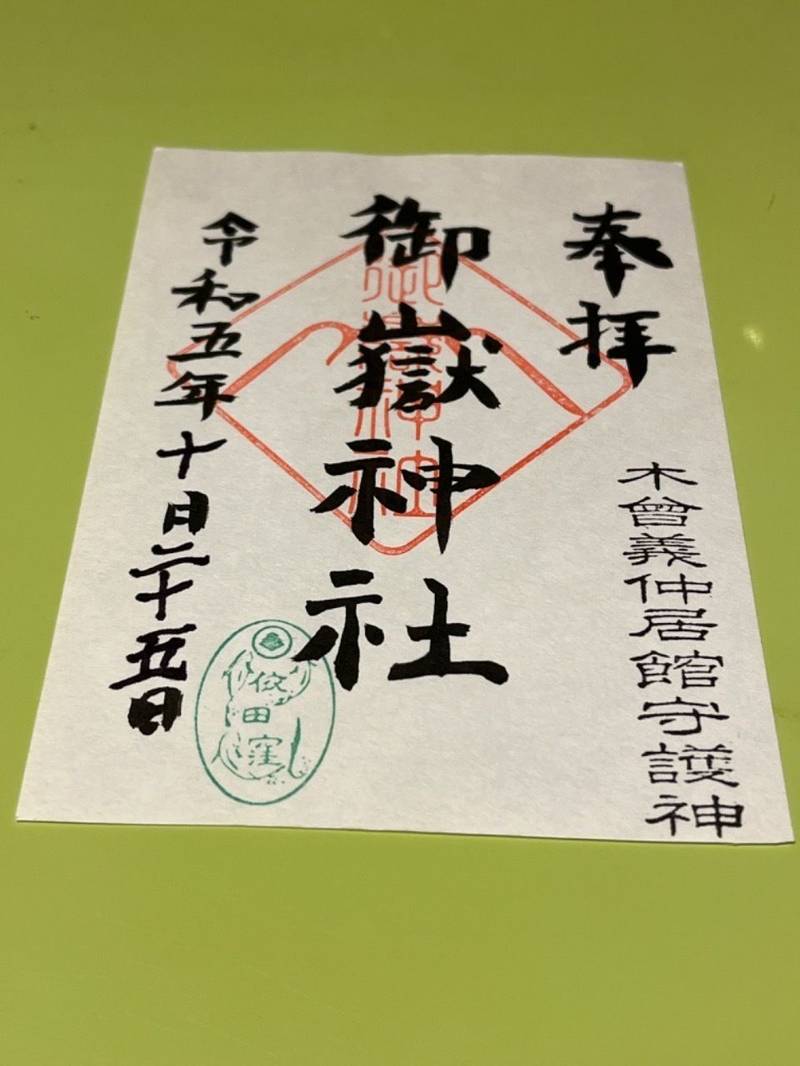 奉拝
木曾義仲居館守護神
御嶽神社
御嶽神社
令和五年十月二十五日
依田窪